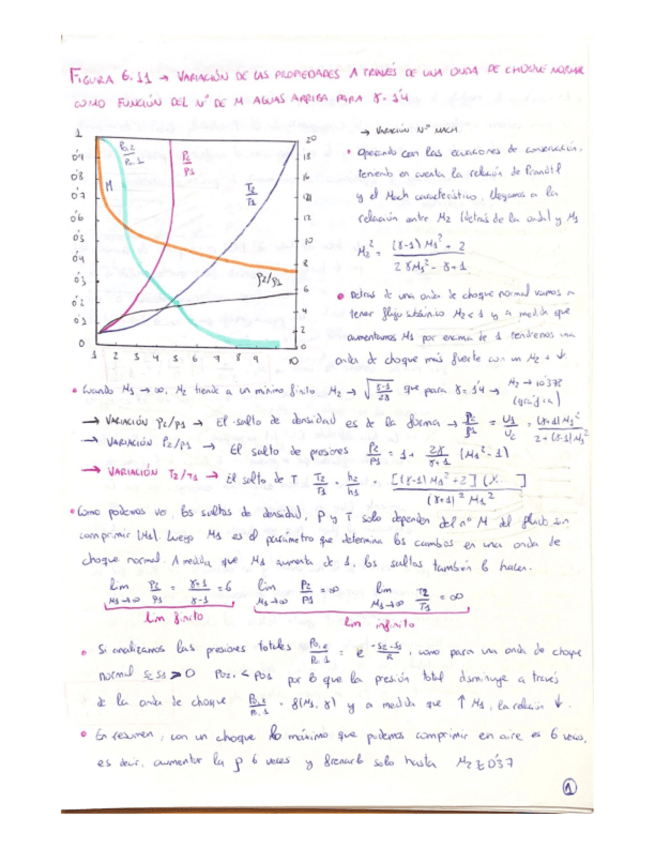 FIGURA 6.11 → VARIACIÓN DE LAS PROPIEDADES A TRAVÉS DE UNA ONDA DE CHOQUE NORMAL
COMO FUNCIÓN DEL Nº DE M AGUAS ARRIBA PARA γ = 1'4
1
0'9
0'8
0'7
0'6
0'5
0'4
0'3
0'2
0'1
0
1 2 3 4 5 6 7 8 9 10
20
18
16
14
12
10
8
6
4
2
0
P0,2/P0,1
M
P2/P1
T2/T1
ρ2/ρ1
→ VARIACIÓN Nº MACH
• Operando con las ecuaciones de conservación,
teniendo en cuenta la relación de Prandtl
y el Mach característico, llegamos a la
relación entre M2 (detrás de la onda) y M1
M2² = ((γ-1) M1² + 2) / (2γM1² - γ+1)
• Detrás de una onda de choque normal vamos a
tener flujo subsónico M2 < 1 y a medida que
aumentamos M1 por encima de 1 tendremos una
onda de choque más fuerte con un M2 ↓
• Cuando M1 → ∞, M2 tiende a un mínimo finito M2 → √((γ-1)/2γ) que para γ = 1'4 → M2 → 0'378
(gráfica)
→ VARIACIÓN ρ2/ρ1 → El salto de densidad es de la forma → ρ2/ρ1 = U1/U2 = (γ+1) M1² / (2+(γ-1) M1²)
→ VARIACIÓN P2/P1 → El salto de presiones P2/P1 = 1 + 2γ/(γ+1) (M1² - 1)
→ VARIACIÓN T2/T1 → El salto de T T2/T1 = h2/h1 = [(γ-1) M1² + 2] (γ...] / (γ+1)² M1²
• Como podemos ver, los saltos de densidad, P y T solo dependen del nº M del fluido sin
comprimir (M1). Luego M1 es el parámetro que determina los cambios en una onda de
choque normal. A medida que M1 aumenta de 1, los saltos también lo hacen.
lim M1→∞ ρ2/ρ1 = (γ+1)/(γ-1) = 6 lim M1→∞ P2/P1 = ∞ lim M1→∞ T2/T1 = ∞
lim finito lim infinito
• Si analizamos las presiones totales P0,2/P0,1 = e^(-(S2-S1)/R), como para una onda de choque
normal S2 S1 > 0 P02, < P01 por lo que la presión total disminuye a través
de la onda de choque P0,2/P0,1 = f(M1, γ) y a medida que ↑ M1, la relación ↓.
• En resumen, con un choque lo máximo que podemos comprimir en aire es 6 veces,
es decir, aumentar la ρ 6 veces y frenarlo solo hasta M2 ≥ 0'37
1